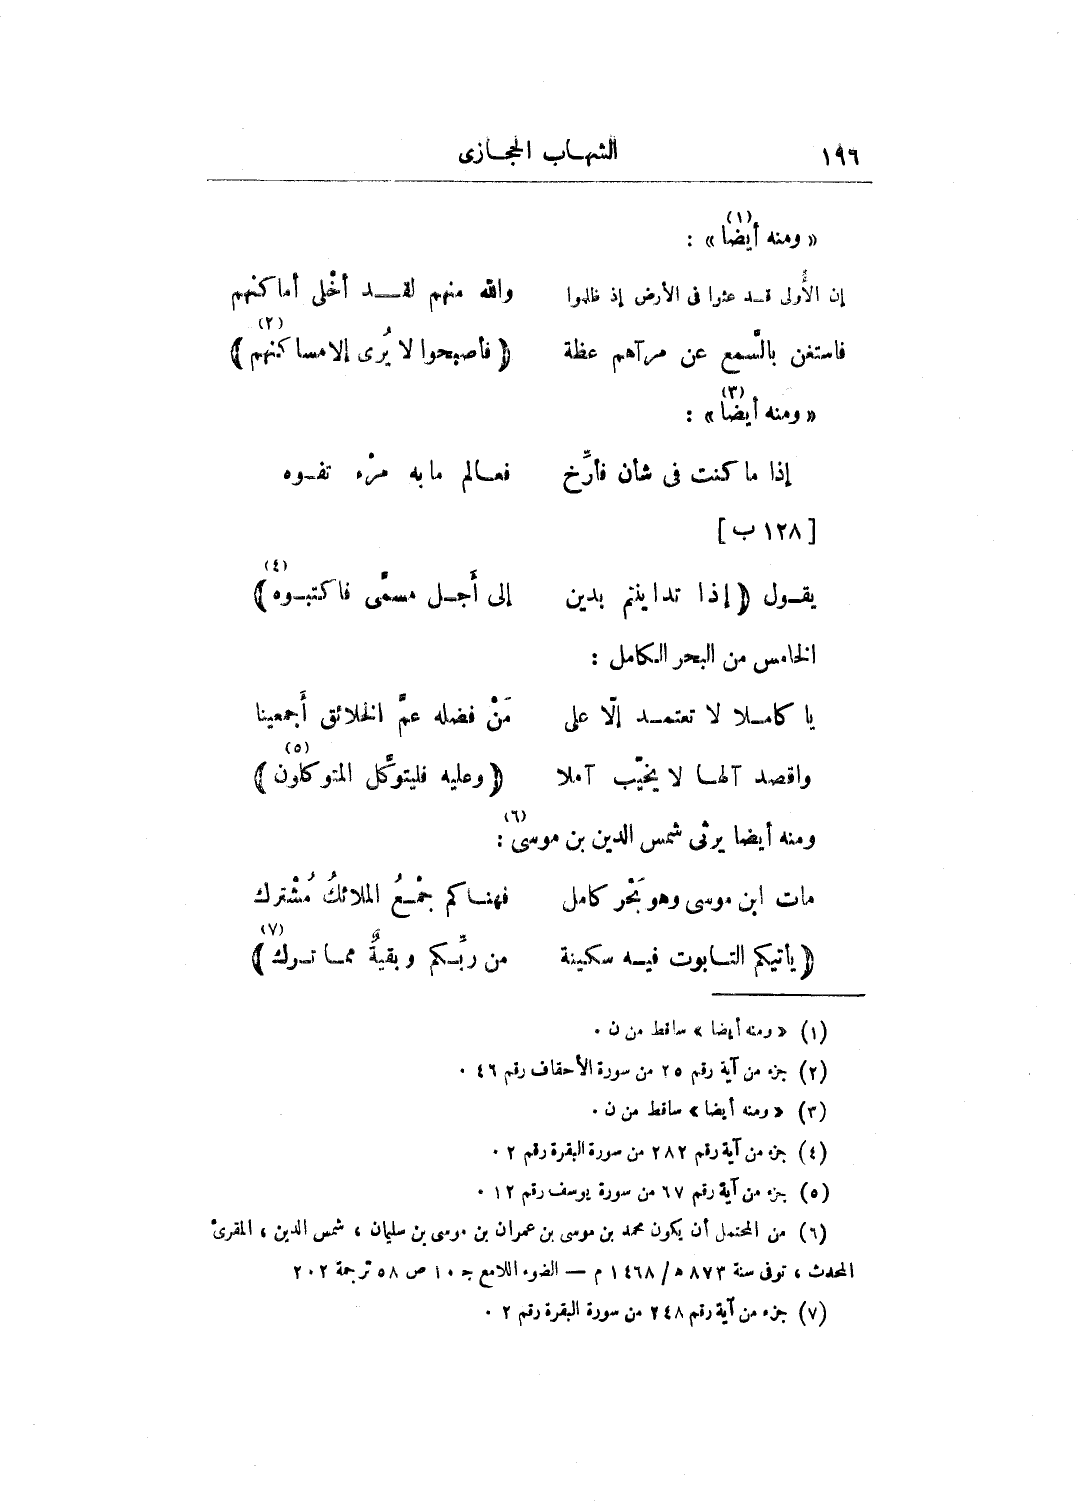 ١٩٦ الشهاب الحجازى
« ومنه أيضا(١) » :
إن الأُولى قد عثوا فى الأرض إذ ظلموا والله منهم لقد أخْلى أماكنهم
فاستغن بالسَّمع عن مرآهم عظة ﴿ فأصبحوا لا يُرى إلا مساكنهم(٢) ﴾
« ومنه أيضا(٣) » :
إذا ما كنت فى شأن فأرِّخ فعالم ما به مرْء تفوه
[ ١٢٨ ب ]
يقول ﴿ إذا تداينتم بدين إلى أَجل مسمَّى فاكتبوه(٤) ﴾
الخامس من البحر الكامل :
يا كاملا لا تعتمد إلّا على مَنْ فضله عمَّ الخلائق أَجمعينا
واقصد آلها لا يخيّب آملا ﴿ وعليه فليتوكَّل المتوكلون(٥) ﴾
ومنه أيضا يرثى شمس الدين بن موسى(٦) :
مات ابن موسى وهو بَحْر كامل فهناكم جمْعُ الملائكُ مُشْترك
﴿ يأتيكم التابوت فيه سكينة من ربِّكم وبقيةٌ مما ترك(٧) ﴾
(١) « ومنه أيضا » ساقط من ن ٠
(٢) جزء من آية رقم ٢٥ من سورة الأحقاف رقم ٤٦ ٠
(٣) « ومنه أيضا » ساقط من ن ٠
(٤) جزء من آية رقم ٢٨٢ من سورة البقرة رقم ٢ ٠
(٥) جزء من آية رقم ٦٧ من سورة يوسف رقم ١٢ ٠
(٦) من المحتمل أن يكون محمد بن موسى بن عمران بن موسى بن سليمان ، شمس الدين ، المقرئ
المحدث ، توفى سنة ٨٧٣ هـ/ ١٤٦٨ م — الضوء اللامع جـ ١٠ ص ٥٨ ترجمة ٢٠٢
(٧) جزء من آية رقم ٢٤٨ من سورة البقرة رقم ٢ ٠